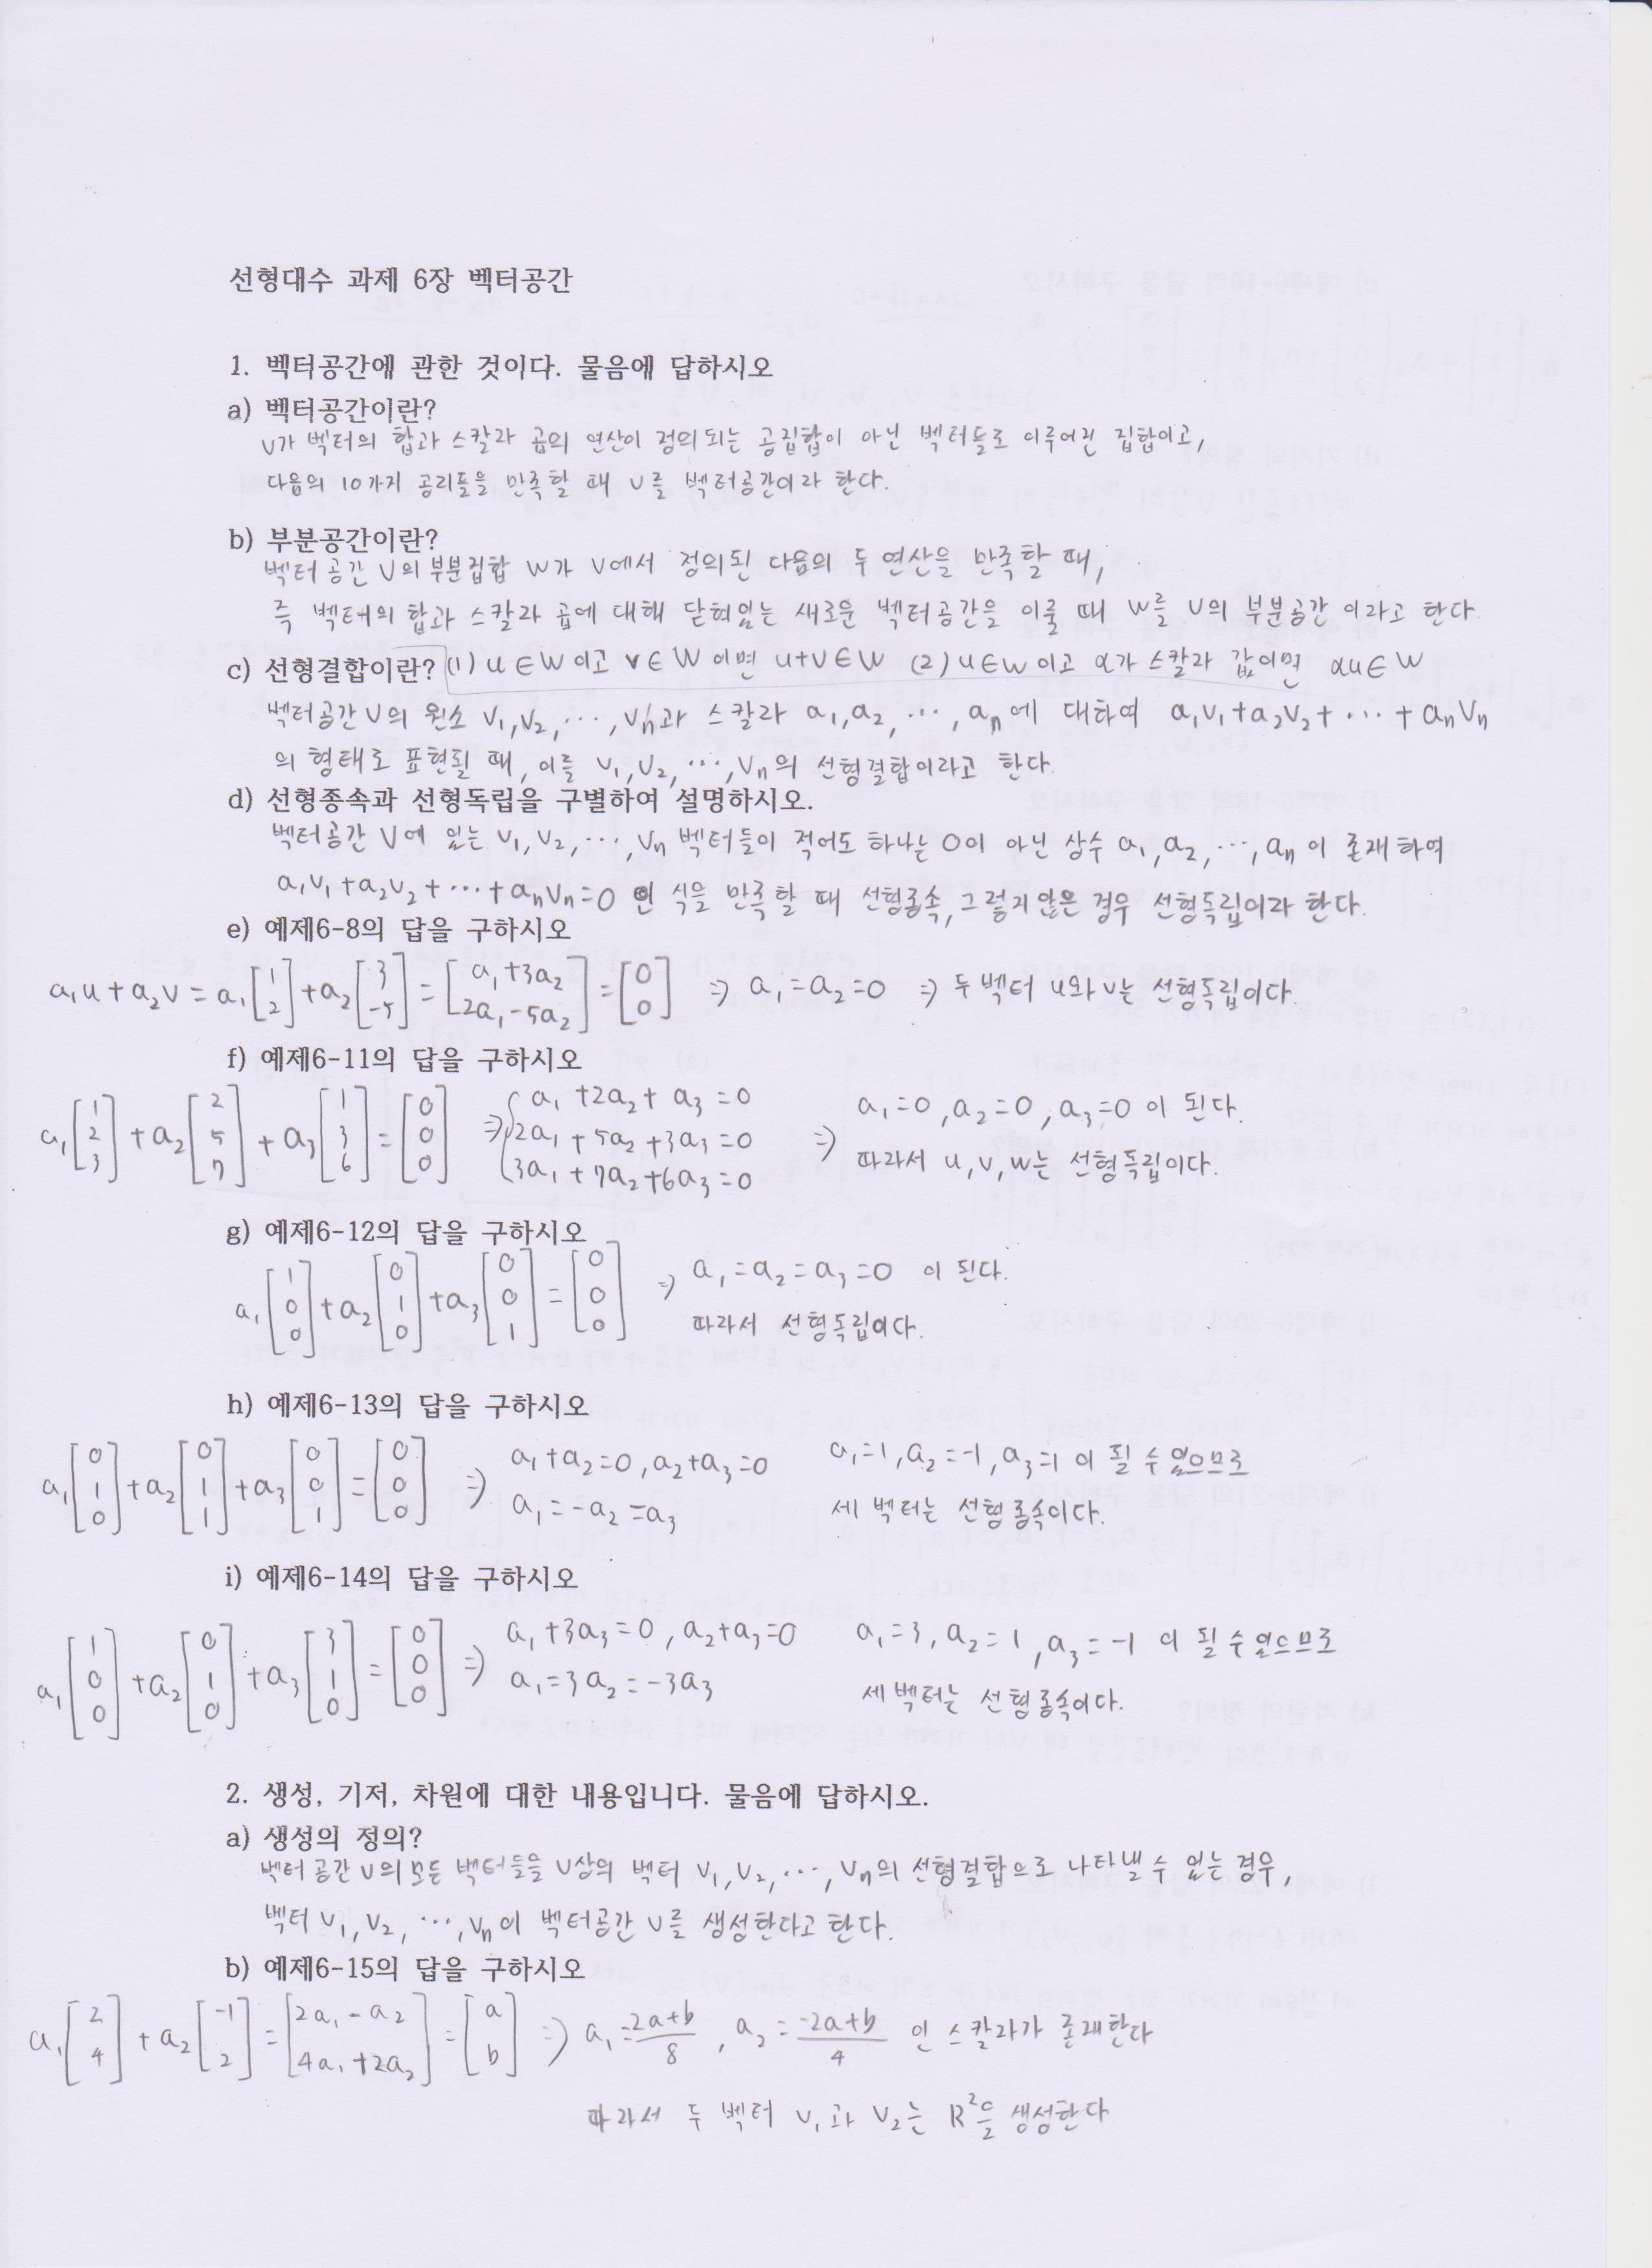 선형대수 과제 6장 벡터공간
1. 벡터공간에 관한 것이다. 물음에 답하시오
a) 벡터공간이란?
V가 벡터의 합과 스칼라 곱의 연산이 정의되는 공집합이 아닌 벡터들로 이루어진 집합이고,
다음의 10가지 공리들을 만족할 때 V를 벡터공간이라 한다.
b) 부분공간이란?
벡터 공간 V의 부분집합 W가 V에서 정의된 다음의 두 연산을 만족할 때,
즉 벡터의 합과 스칼라 곱에 대해 닫혀있는 새로운 벡터공간을 이룰 때 W를 V의 부분공간 이라고 한다.
(1) u∈W이고 v∈W이면 u+v∈W (2) u∈W이고 α가 스칼라 값이면 αu∈W
c) 선형결합이란?
벡터공간 V의 원소 v₁, v₂, ⋯, vₙ과 스칼라 a₁, a₂, ⋯, aₙ에 대하여 a₁v₁+a₂v₂+⋯+aₙvₙ
의 형태로 표현될 때, 이를 v₁, v₂, ⋯, vₙ의 선형결합이라고 한다.
d) 선형종속과 선형독립을 구별하여 설명하시오.
벡터공간 V에 있는 v₁, v₂, ⋯, vₙ 벡터들이 적어도 하나는 0이 아닌 상수 a₁, a₂, ⋯, aₙ이 존재하여
a₁v₁+a₂v₂+⋯+aₙvₙ=0 인 식을 만족할 때 선형종속, 그렇지 않은 경우 선형독립이라 한다.
e) 예제6-8의 답을 구하시오
a₁u+a₂v = a₁[1 2]+a₂[3 -5] = [a₁+3a₂ 2a₁-5a₂] = [0 0] ⇒ a₁=a₂=0 ⇒ 두 벡터 u와 v는 선형독립이다.
f) 예제6-11의 답을 구하시오
a₁[1 2 3]+a₂[2 5 7]+a₃[1 3 6]=[0 0 0] ⇒ { a₁+2a₂+a₃=0 2a₁+5a₂+3a₃=0 3a₁+7a₂+6a₃=0 ⇒ a₁=0, a₂=0, a₃=0 이 된다.
따라서 u, v, w는 선형독립이다.
g) 예제6-12의 답을 구하시오
a₁[1 0 0]+a₂[0 1 0]+a₃[0 0 1]=[0 0 0] ⇒ a₁=a₂=a₃=0 이 된다.
따라서 선형독립이다.
h) 예제6-13의 답을 구하시오
a₁[0 1 0]+a₂[0 1 1]+a₃[0 0 1]=[0 0 0] ⇒ a₁+a₂=0, a₂+a₃=0 a₁=1, a₂=-1, a₃=1 이 될 수 있으므로
a₁=-a₂=a₃ 세 벡터는 선형종속이다.
i) 예제6-14의 답을 구하시오
a₁[1 0 0]+a₂[0 1 0]+a₃[3 1 0]=[0 0 0] ⇒ a₁+3a₃=0, a₂+a₃=0 a₁=3, a₂=1, a₃=-1 이 될 수 있으므로
a₁=3a₂=-3a₃ 세 벡터는 선형종속이다.
2. 생성, 기저, 차원에 대한 내용입니다. 물음에 답하시오.
a) 생성의 정의?
벡터 공간 V의 모든 벡터들을 V상의 벡터 v₁, v₂, ⋯, vₙ의 선형결합으로 나타낼 수 있는 경우,
벡터 v₁, v₂, ⋯, vₙ이 벡터공간 V를 생성한다고 한다.
b) 예제6-15의 답을 구하시오
a₁[2 4]+a₂[-1 2]=[2a₁-a₂ 4a₁+2a₂]=[a b] ⇒ a₁=2a+b/8, a₂=-2a+b/4 인 스칼라가 존재한다
따라서 두 벡터 v₁과 v₂는 R²을 생성한다